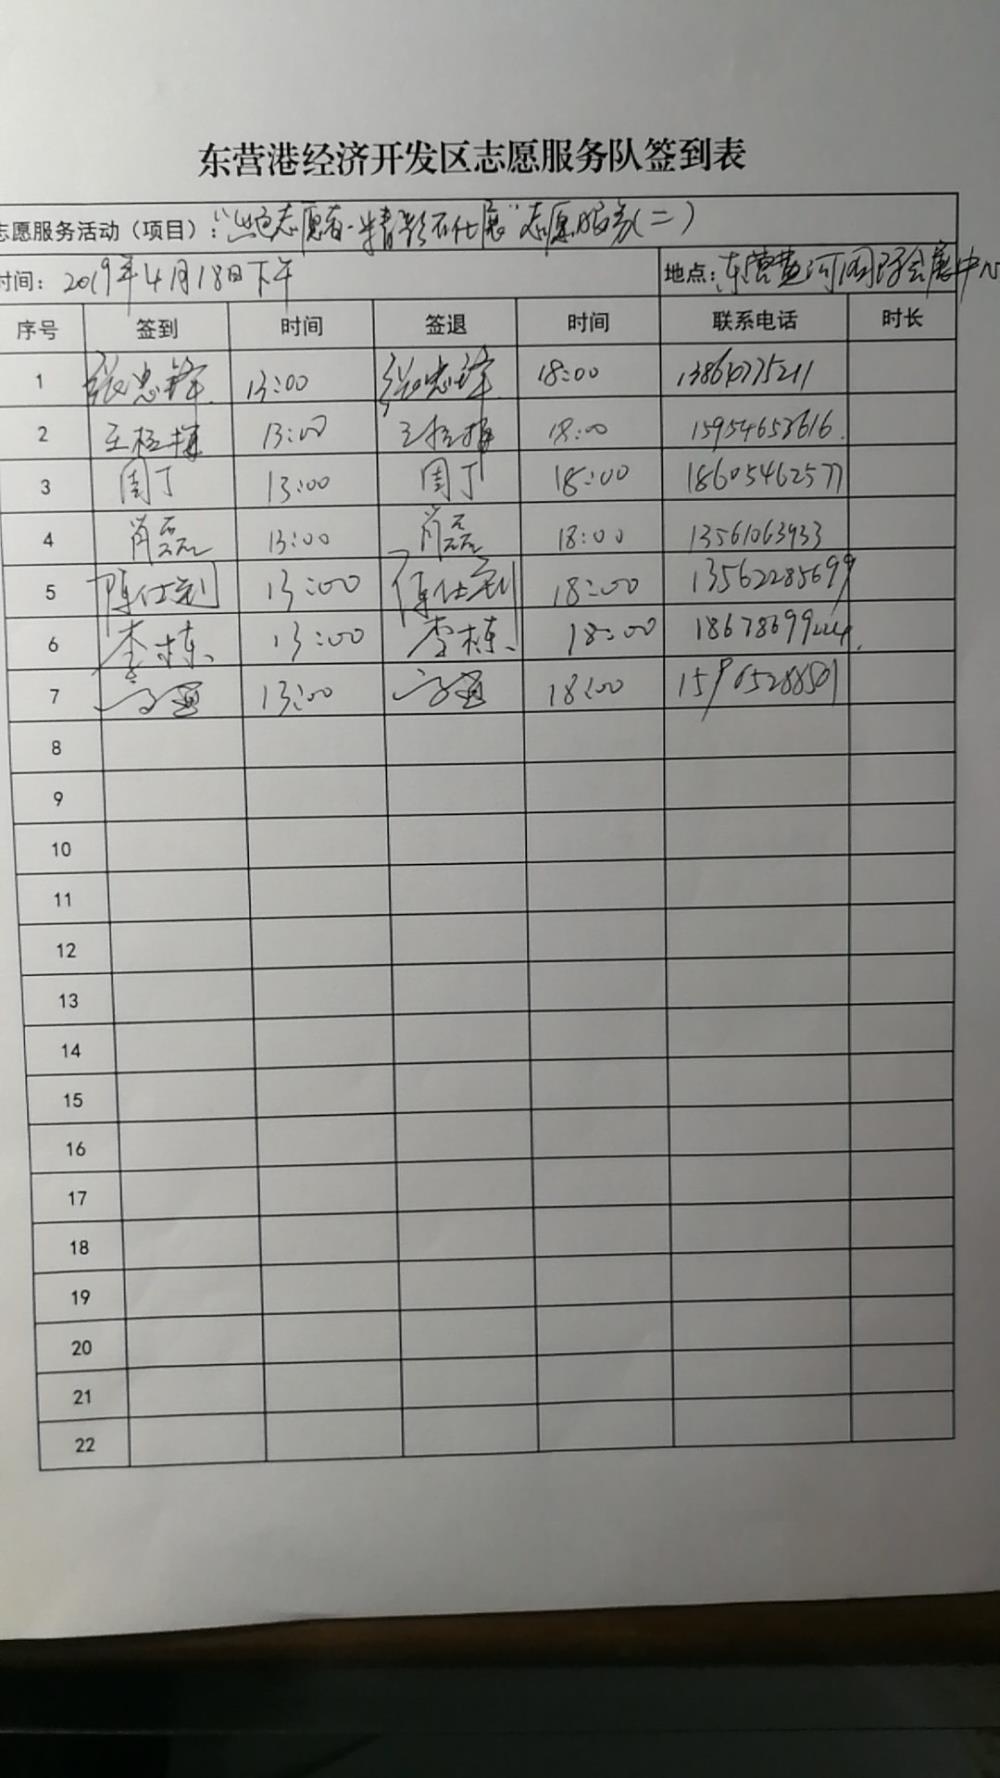 东营港经济开发区志愿服务队签到表
志愿服务活动（项目）：志愿者·精彩石化展"志愿服务(二)
时间：2019年4月18日下午 地点：东营黄河国际会展中心
序号 签到 时间 签退 时间 联系电话 时长
1 张忠锋 13:00 张忠锋 18:00
2 13:00 18:00 15954653616
3 周丁 13:00 周丁 18:00 18605462577
4 肖磊 13:00 肖磊 18:00 13561063933
5 13:00 18:00 13562285699
6 李栋 13:00 李栋 18:00
7 13:00 18:00
8
9
10
11
12
13
14
15
16
17
18
19
20
21
22